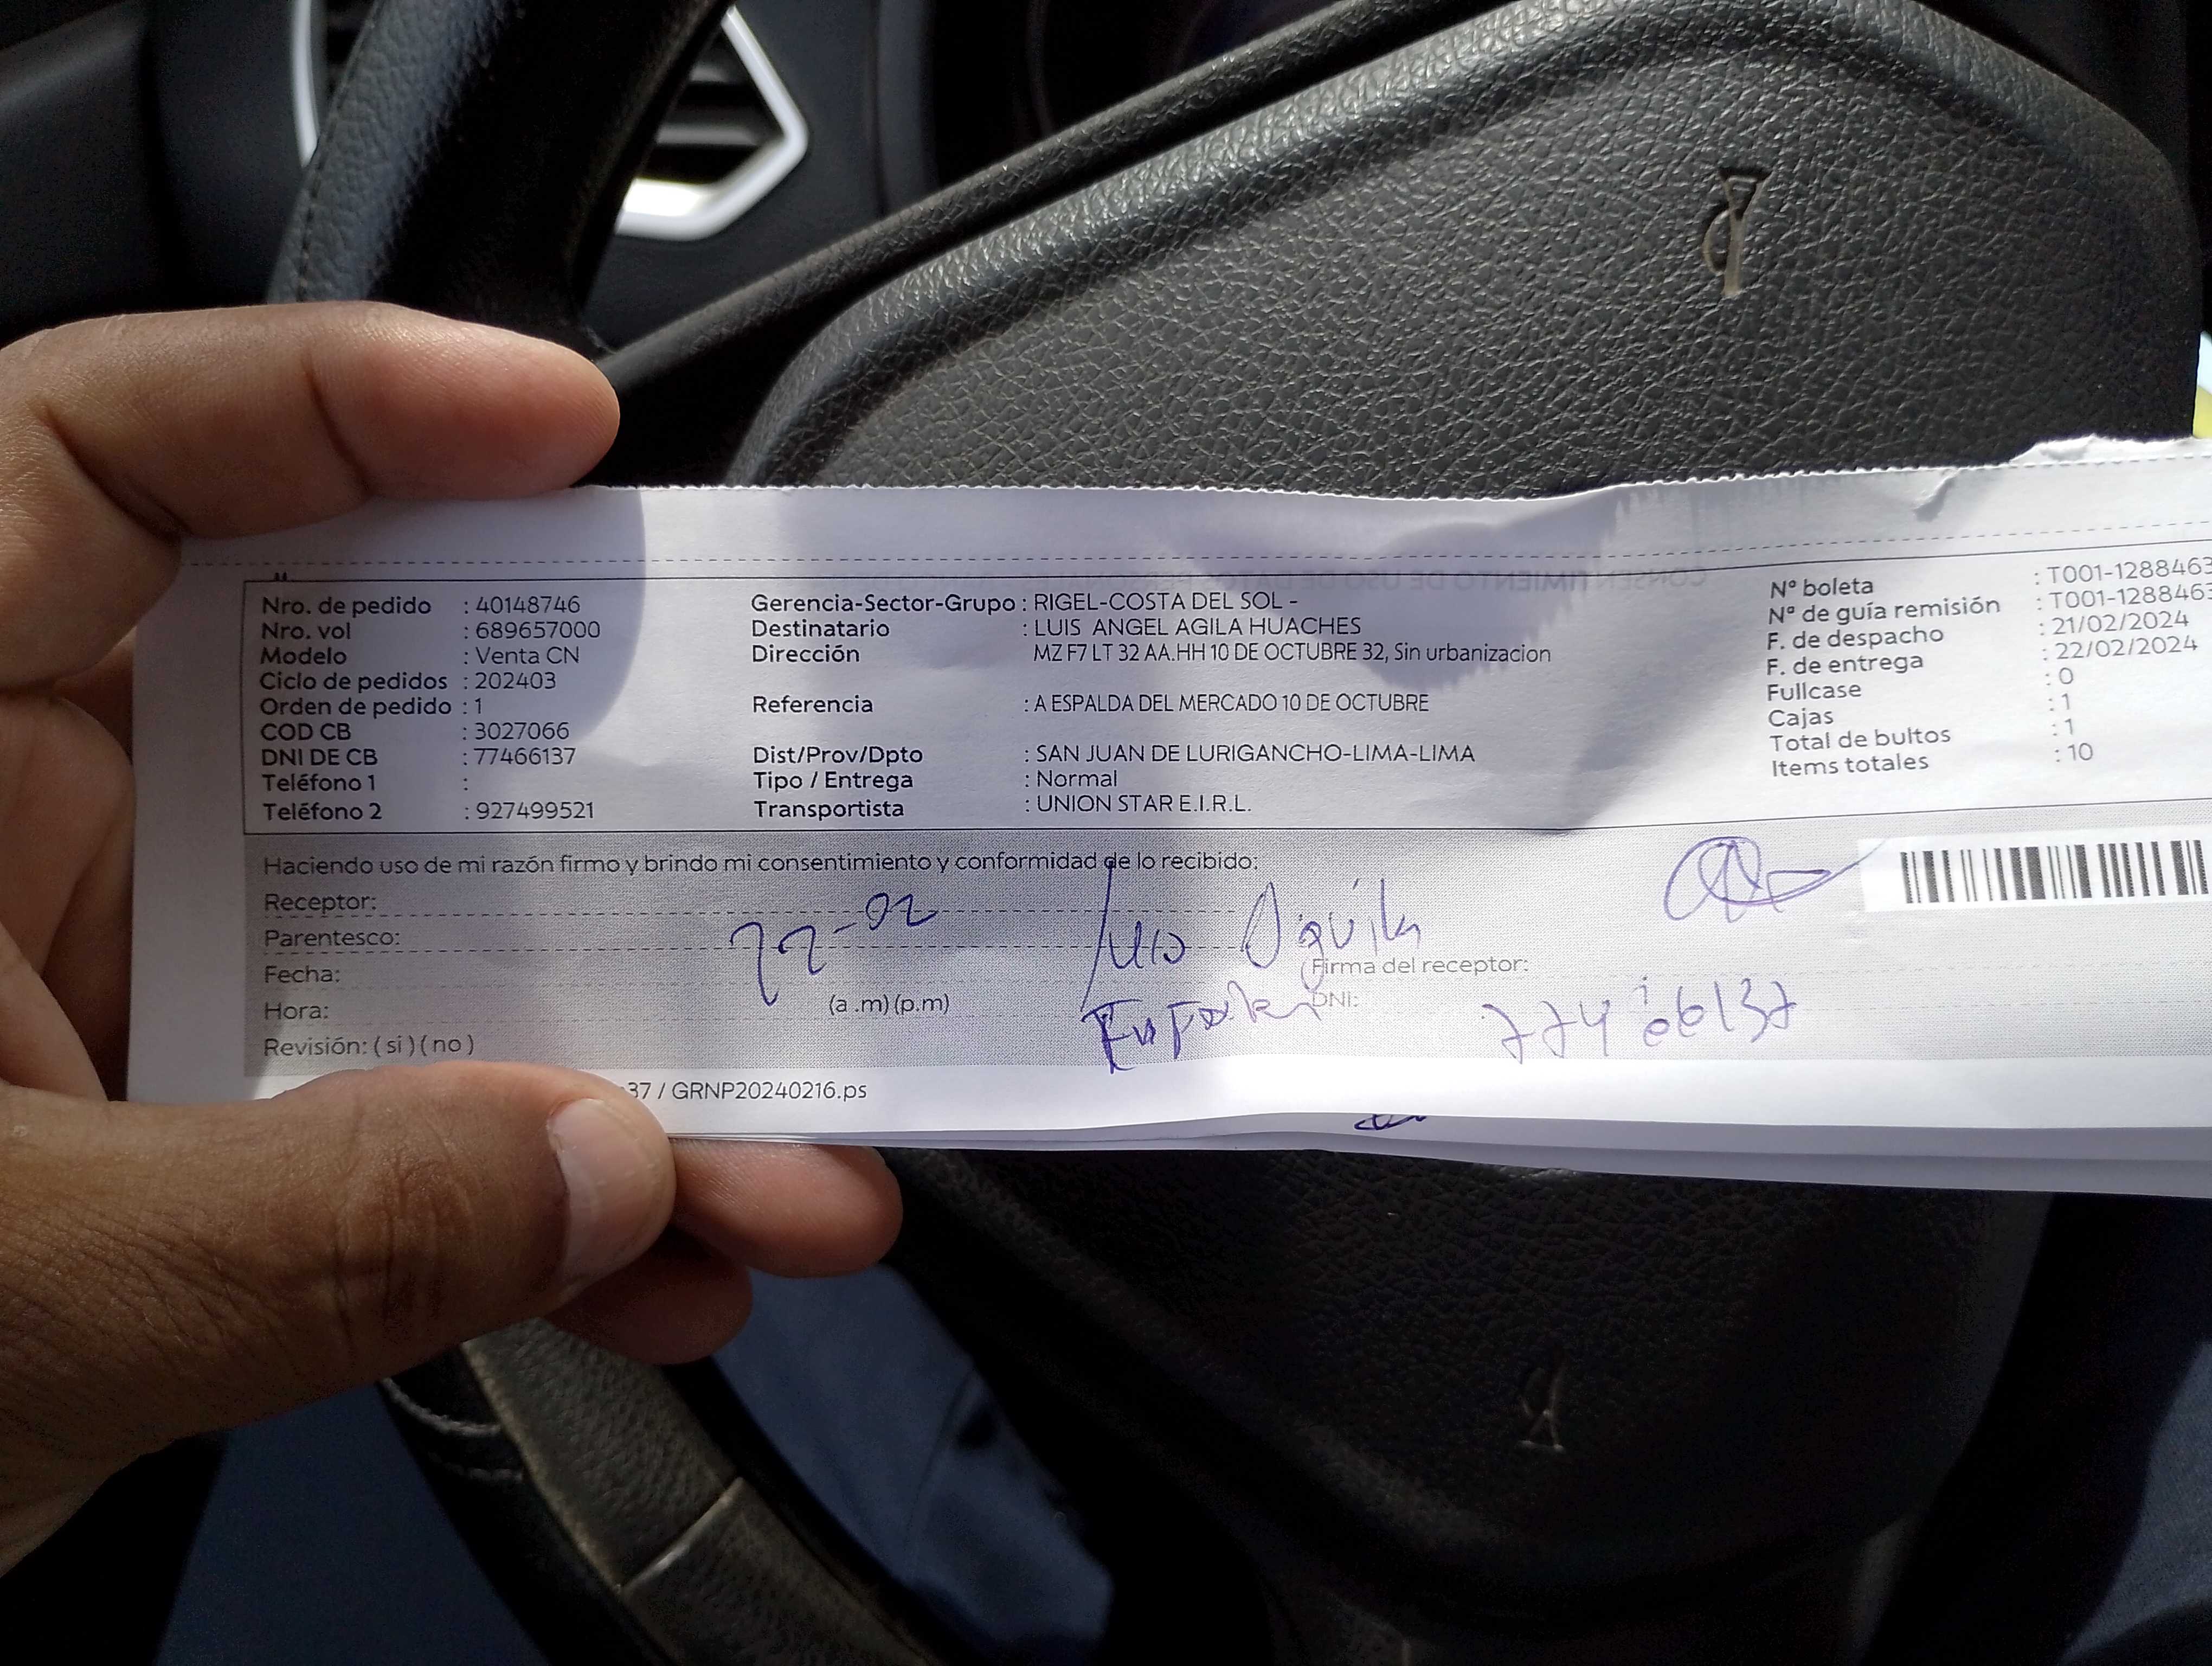 Nro. de pedido : 40148746
Nro. vol : 689657000
Modelo : Venta CN
Ciclo de pedidos : 202403
Orden de pedido : 1
COD CB : 3027066
DNI DE CB : 77466137
Teléfono 1 :
Teléfono 2 : 927499521
Gerencia-Sector-Grupo : RIGEL-COSTA DEL SOL -
Destinatario : LUIS ANGEL AGILA HUACHES
Dirección MZ F7 LT 32 AA.HH 10 DE OCTUBRE 32, Sin urbanizacion
Referencia : A ESPALDA DEL MERCADO 10 DE OCTUBRE
Dist/Prov/Dpto : SAN JUAN DE LURIGANCHO-LIMA-LIMA
Tipo / Entrega : Normal
Transportista : UNION STAR E.I.R.L.
Nº boleta : T001-1288463
Nº de guía remisión : T001-1288463
F. de despacho : 21/02/2024
F. de entrega : 22/02/2024
Fullcase : 0
Cajas : 1
Total de bultos : 1
Items totales : 10
Haciendo uso de mi razón firmo y brindo mi consentimiento y conformidad de lo recibido:
Receptor:
Parentesco:
Fecha: 22-02
Hora: (a .m) (p.m)
Revisión: ( si ) ( no )
Luis Aguila
Firma del receptor:
DNI: 77466137
37 / GRNP20240216.ps